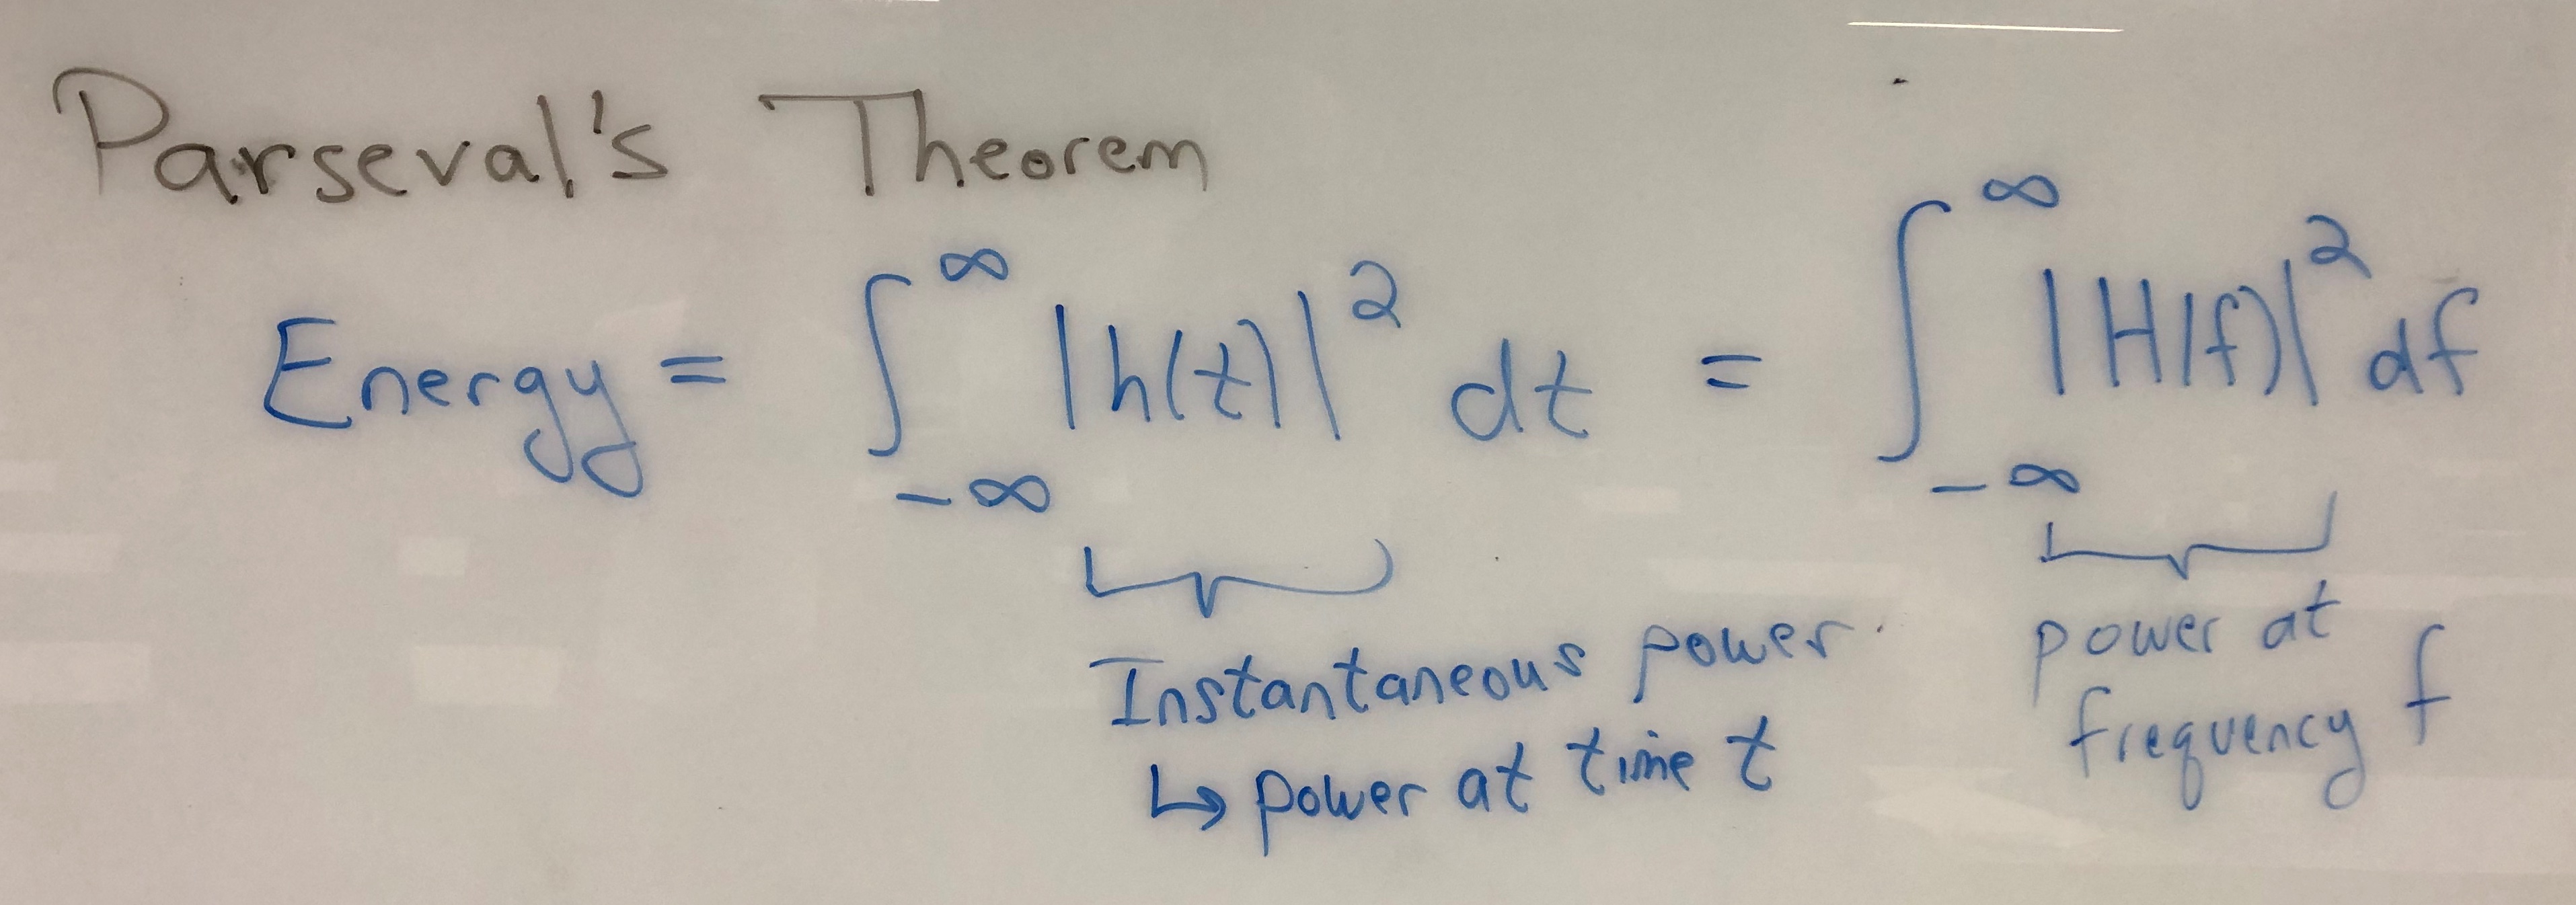 Parseval's Theorem
Energy = ∫_{-∞}^{∞} |h(t)|² dt = ∫_{-∞}^{∞} |H(f)|² df
Instantaneous power
↳ power at time t
power at
frequency f